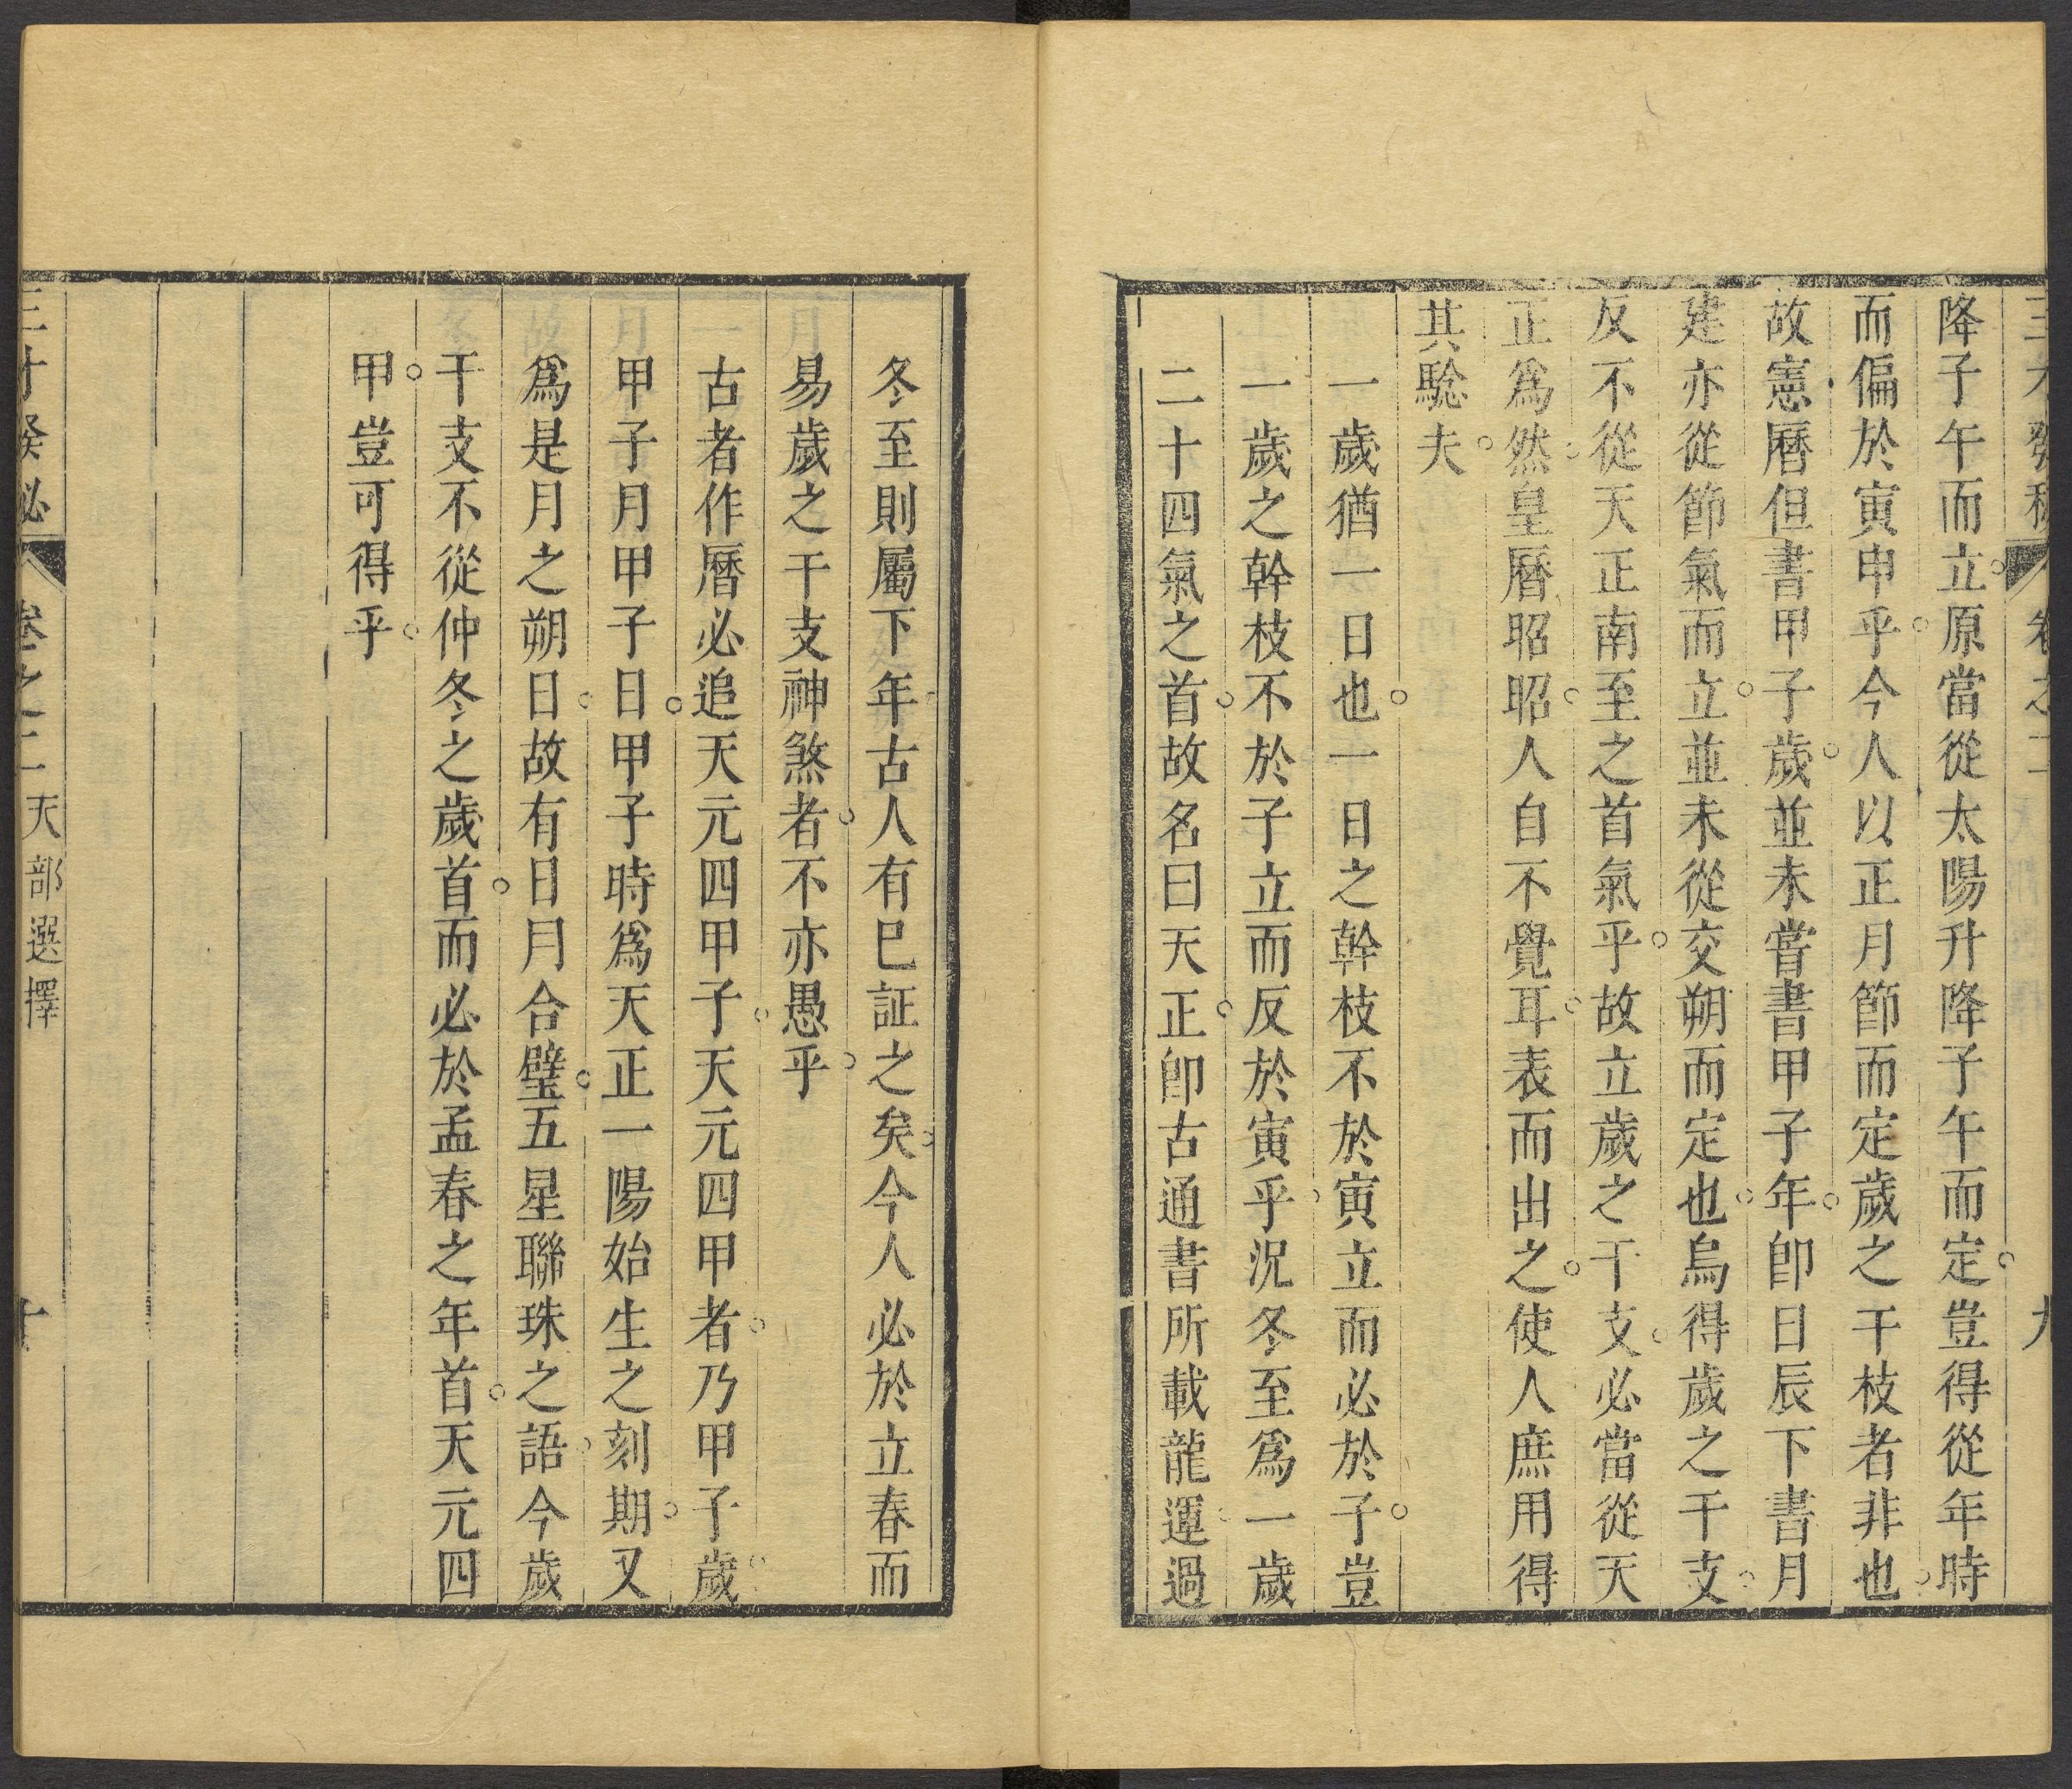 三才發秘 卷之二 九
降子午而立原當從太陽升降子午而定豈得從年時
而偏於寅申乎今人以正月節而定歲之干枝者非也
故憲曆但書甲子歲並未嘗書甲子年卽日辰下書月
建亦從節氣而立並未從交朔而定也烏得歲之干支
反不從天正南至之首氣乎故立歲之干支必當從天
正爲然皇曆昭昭人自不覺耳表而出之使人庶用得
其騐夫
一歲猶一日也一日之幹枝不於寅立而必於子豈
一歲之幹枝不於子立而反於寅乎況冬至爲一歲
二十四氣之首故名曰天正卽古通書所載龍運過
冬至則屬下年古人有巳証之矣今人必於立春而
易歲之干支神煞者不亦愚乎
古者作曆必追天元四甲子天元四甲者乃甲子歲
甲子月甲子日甲子時爲天正一陽始生之刻期又
爲是月之朔日故有日月合璧五星聯珠之語今歲
干支不從仲冬之歲首而必於孟春之年首天元四
甲豈可得乎
三才發秘 卷之二 天部選擇 十